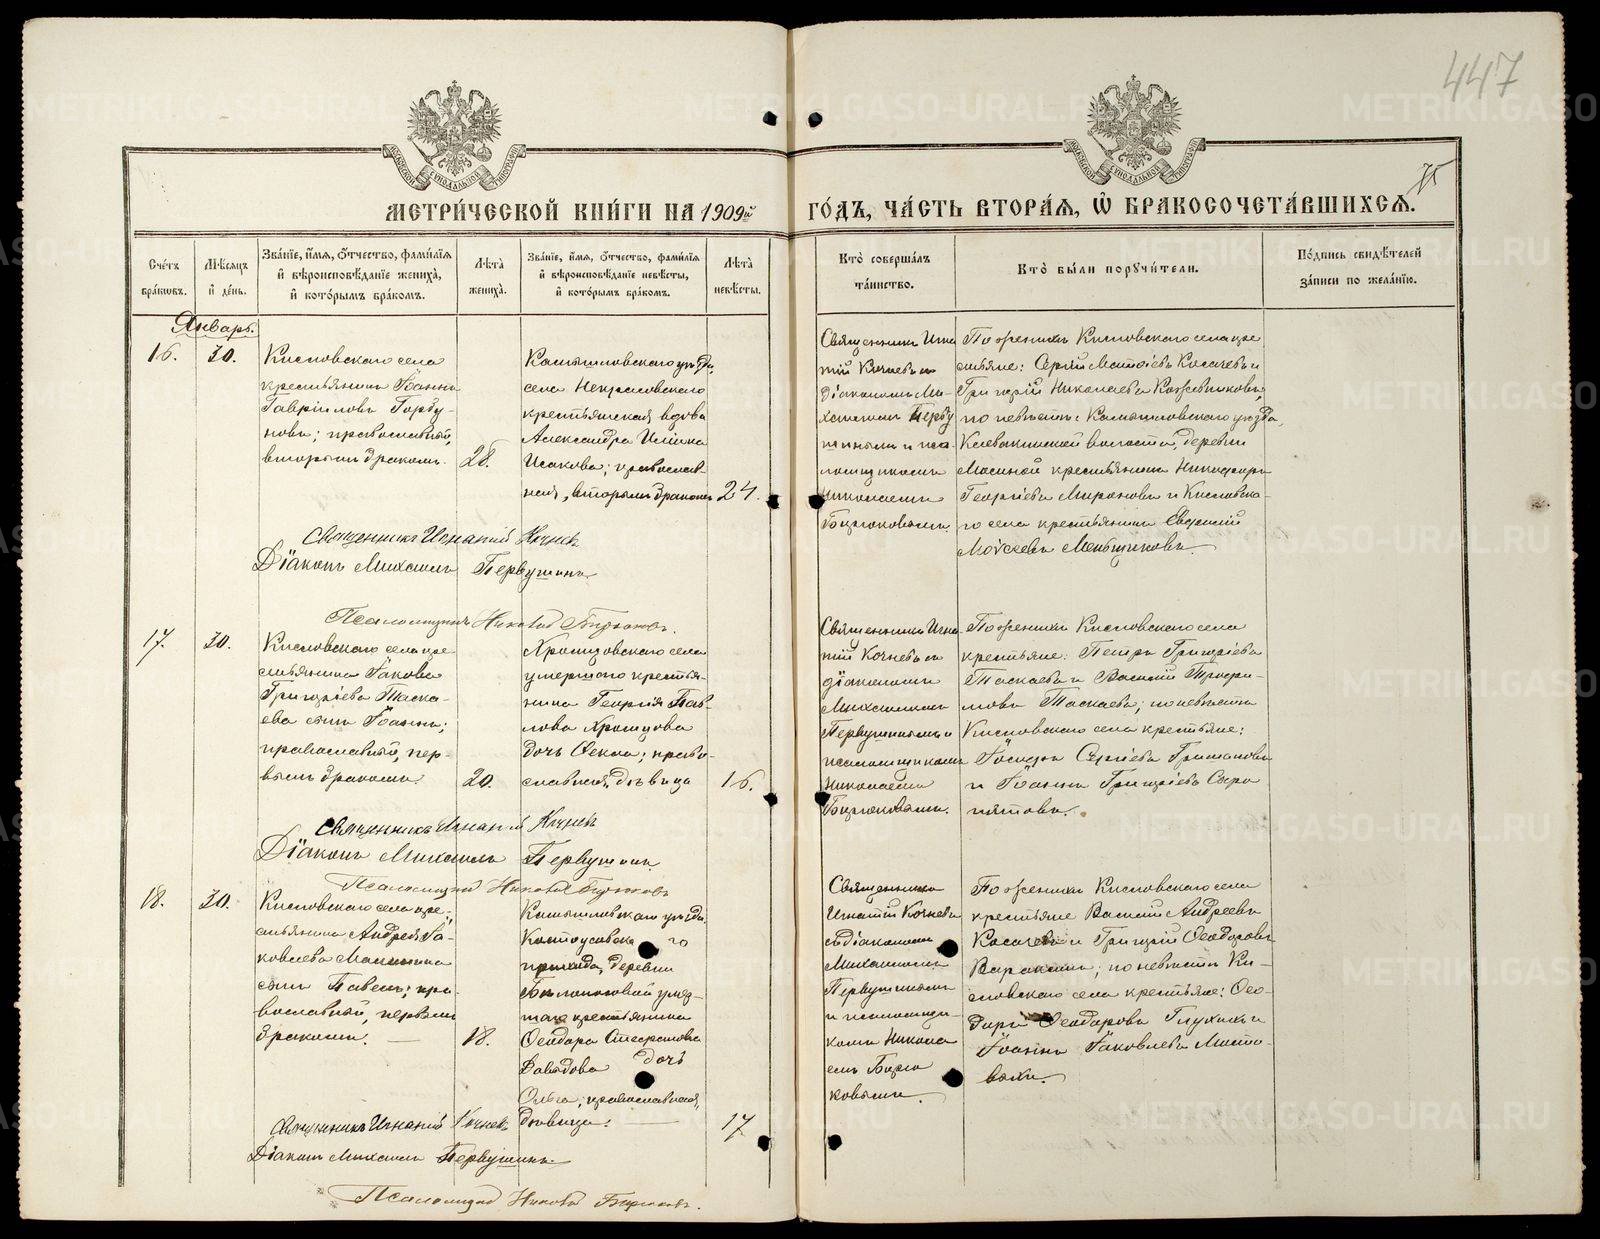 447
75
МЕТРИ́ЧЕСКОЙ КНИ́ГИ НА 1909й ГО́ДЪ, ЧА́СТЬ ВТОРА́Я, Ѡ БРАКОСОЧЕТА́ВШИХСЯ.
Сче́тъ бра́ковъ.
Мѣ́сяцъ и де́нь.
Зва́нїе, и́мя, ѻ́тчество, фами́лїя и вѣроисповѣ́данїе жениха̀, и кото́рымъ бра́комъ.
Лѣ́та жениха̀.
Зва́нїе, и́мя, ѻ́тчество, фами́лїя и вѣроисповѣ́данїе невѣ́сты, и кото́рымъ бра́комъ.
Лѣ́та невѣ́сты.
Кто̀ соверша́лъ та́инство.
Кто̀ бы́ли поручи́тели.
По́дпись свидѣ́телей за́писи по жела́нїю.
Январь.
16.
30.
Кисловскаго села
крестьянинъ Іоаннъ
Гавріиловъ Горбу-
новъ; православный,
вторымъ бракомъ.
28.
Камышловскаго уѣзда,
села Некрасовскаго
крестьянская вдова
Александра Ильина
Исакова; православ-
ная, вторымъ бракомъ
24.
Священникъ Игна
тій Кочневъ съ
діакономъ Ми-
хаиломъ Перву
шинымъ и пса-
ломщикомъ
Николаемъ
Бирюковымъ.
По женихѣ Кисловскаго села кре
стьяне: Сергій Матѳіевъ Косачевъ и
Григорій Николаевъ Кожевниковъ;
по невѣстѣ: Камышловскаго уѣзда,
Клевакинской волости, деревни
Мосиной крестьянинъ Никифоръ
Георгіевъ Мироновъ и Кисловска-
го села крестьянинъ Евгеній
Моѵсеевъ Меньщиковъ.
Священникъ Игнатій Кочневъ
Діаконъ Михаилъ Первушинъ
Псаломщикъ Николай Бирюковъ.
17.
30.
Кисловскаго села кре
стьянина Іакова
Григоріева Таска-
ева сынъ Іоаннъ;
православный, пер-
вымъ бракомъ.
20.
Храмцовскаго села
умершаго крестья-
нина Георгія Пав-
лова Храмцова
дочь Ѳекла; право-
славная, дѣвица
16.
Священникъ Игна-
тій Кочневъ съ
діакономъ
Михаиломъ
Первушинымъ и
псаломщикомъ
Николаемъ
Бирюковымъ.
По женихѣ Кисловскаго села
крестьяне: Петръ Григоріевъ
Таскаевъ и Василій Трофи-
мовъ Таскаевъ; по невѣстѣ
Кисловскаго села крестьяне:
Сергіевъ
и Іоаннъ Григоріевъ Соро
пятовъ.
Священникъ Игнатій Кочневъ
Діаконъ Михаилъ Первушинъ.
Псаломщикъ Николай Бирюковъ
18.
30.
Кисловскаго села кре-
стьянина Андрея Іа-
ковлева
сынъ Павелъ; пра-
вославный, первымъ
бракомъ.
18.
Камышловскаго уѣзда,
Колтоусовска го
прихода, деревни
Бѣлоносовой умер-
шаго крестьянина
Ѳеодора Стефанова
Давыдова дочь
Ольга; православная,
дѣвица.
17
Священникъ
Игнатій Кочневъ
съ діакономъ
Михаиломъ
Первушинымъ
и псаломщи-
комъ Никола
емъ Бирю
ковымъ.
По женихѣ Кисловскаго села
крестьяне Василій Андреевъ
Косачевъ и Григорій Ѳеодоровъ
Вараксинъ; по невѣстѣ Ки-
словскаго села крестьяне: Ѳео-
доръ Ѳеодоровъ Глухихъ и
Іоаннъ Іаковлевъ Мосто-
выхъ.
Священникъ Игнатій Кочневъ
Діаконъ Михаилъ Первушинъ.
Псаломщикъ Николай Бирюковъ.
METRIKI.GASO-URAL.RU